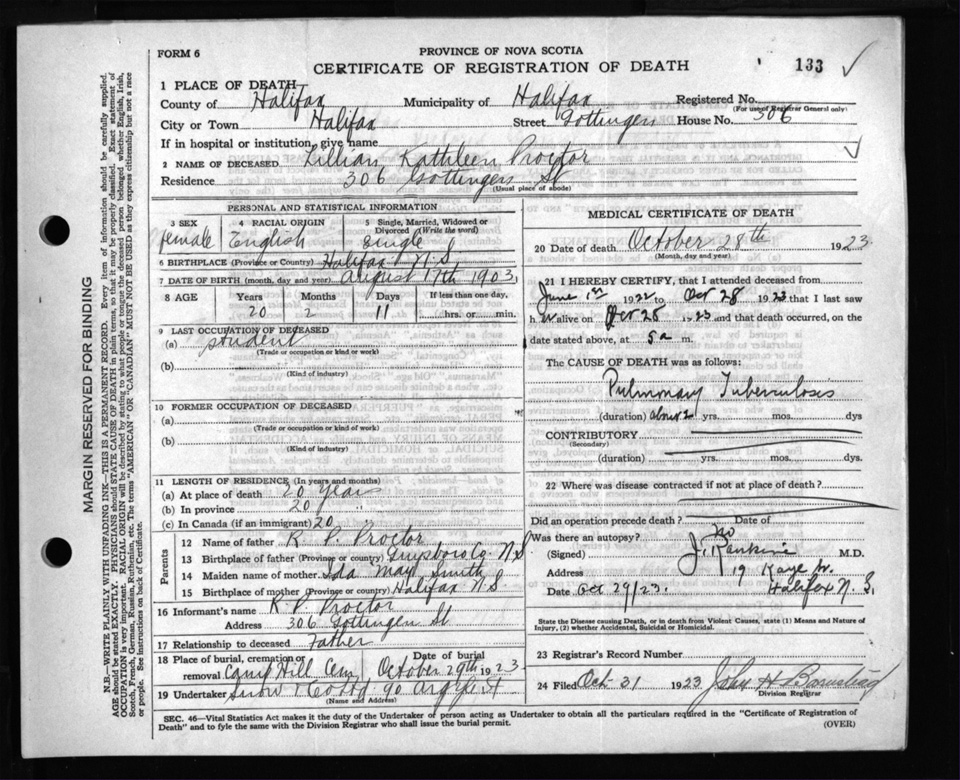 FORM 6
PROVINCE OF NOVA SCOTIA
CERTIFICATE OF REGISTRATION OF DEATH
133
1 PLACE OF DEATH
County of Halifax Municipality of Halifax Registered No.
(For use of Registrar General only)
City or Town Halifax Street Gottingen House No. 306
If in hospital or institution, give name
2 NAME OF DECEASED Lillian Kathleen Proctor
Residence 306 Gottingen St
(Usual place of abode)
PERSONAL AND STATISTICAL INFORMATION
3 SEX 4 RACIAL ORIGIN 5 Single, Married, Widowed or Divorced (Write the word)
Female English Single S
6 BIRTHPLACE (Province or Country) Halifax N.S
7 DATE OF BIRTH (month, day and year) August 17th 1903
8 AGE Years Months Days If less than one day,
20 2 11 hrs. or min.
9 LAST OCCUPATION OF DECEASED
(a) Student
(Trade or occupation or kind or work)
(b)
(Kind of industry)
10 FORMER OCCUPATION OF DECEASED
(a)
(Trade or occupation or kind of work)
(b)
(Kind of industry)
11 LENGTH OF RESIDENCE (In years and months)
(a) At place of death 20 Years
(b) In province 20
(c) In Canada (if an immigrant) 20
Parents
12 Name of father R. P. Proctor
13 Birthplace of father (Province or country) Guysboro Co. N.S
14 Maiden name of mother Ida May Smith
15 Birthplace of mother (Province or country) Halifax N.S
16 Informant's name R. P. Proctor
Address 306 Gottingen St
17 Relationship to deceased Father
18 Place of burial, cremation or removal Camp Hill Cem Date of burial October 29th 1923
19 Undertaker Snow & Co Ltd 90 Argyle St
(Name and Address)
MEDICAL CERTIFICATE OF DEATH
20 Date of death October 28th 1923
(Month, day and year)
21 I HEREBY CERTIFY, that I attended deceased from
June 1st 1922 to Oct 28 1923 that I last saw
her alive on Oct 28 1923 and that death occurred, on the
date stated above, at 5 a m.
The CAUSE OF DEATH was as follows:
Pulmonary Tuberculosis
(duration) about 2 yrs. mos. dys
CONTRIBUTORY
(Secondary)
(duration) yrs. mos. dys
22 Where was disease contracted if not at place of death?
Did an operation precede death? Date of
Was there an autopsy? no
(Signed) J. Rankine M.D.
Address 19 Kaye St.
Date Oct 29/23. Halifax N.S.
State the Disease causing Death, or in death from Violent Causes, state (1) Means and Nature of
Injury, (2) whether Accidental, Suicidal or Homicidal.
23 Registrar's Record Number
24 Filed Oct 31 1923 John H. Barnstead
Division Registrar
SEC. 46—Vital Statistics Act makes it the duty of the Undertaker of person acting as Undertaker to obtain all the particulars required in the "Certificate of Registration of
Death" and to fyle the same with the Division Registrar who shall issue the burial permit.
(OVER)
MARGIN RESERVED FOR BINDING
N.B.—WRITE PLAINLY WITH UNFADING INK—THIS IS A PERMANENT RECORD. Every item of information should be carefully supplied.
AGE should be stated EXACTLY. PHYSICIANS should STATE CAUSE OF DEATH in plain terms, so that it may be properly classified. Exact statement of
OCCUPATION is very important. RACIAL ORIGIN will be described by stating to what people or tongue the deceased person belonged whether English, Irish,
Scotch, French, German, Russian, Ruthenian, etc. The terms "AMERICAN" OR "CANADIAN" MUST NOT BE USED as they express citizenship but not a race
or people. See instructions on back of Certificate.